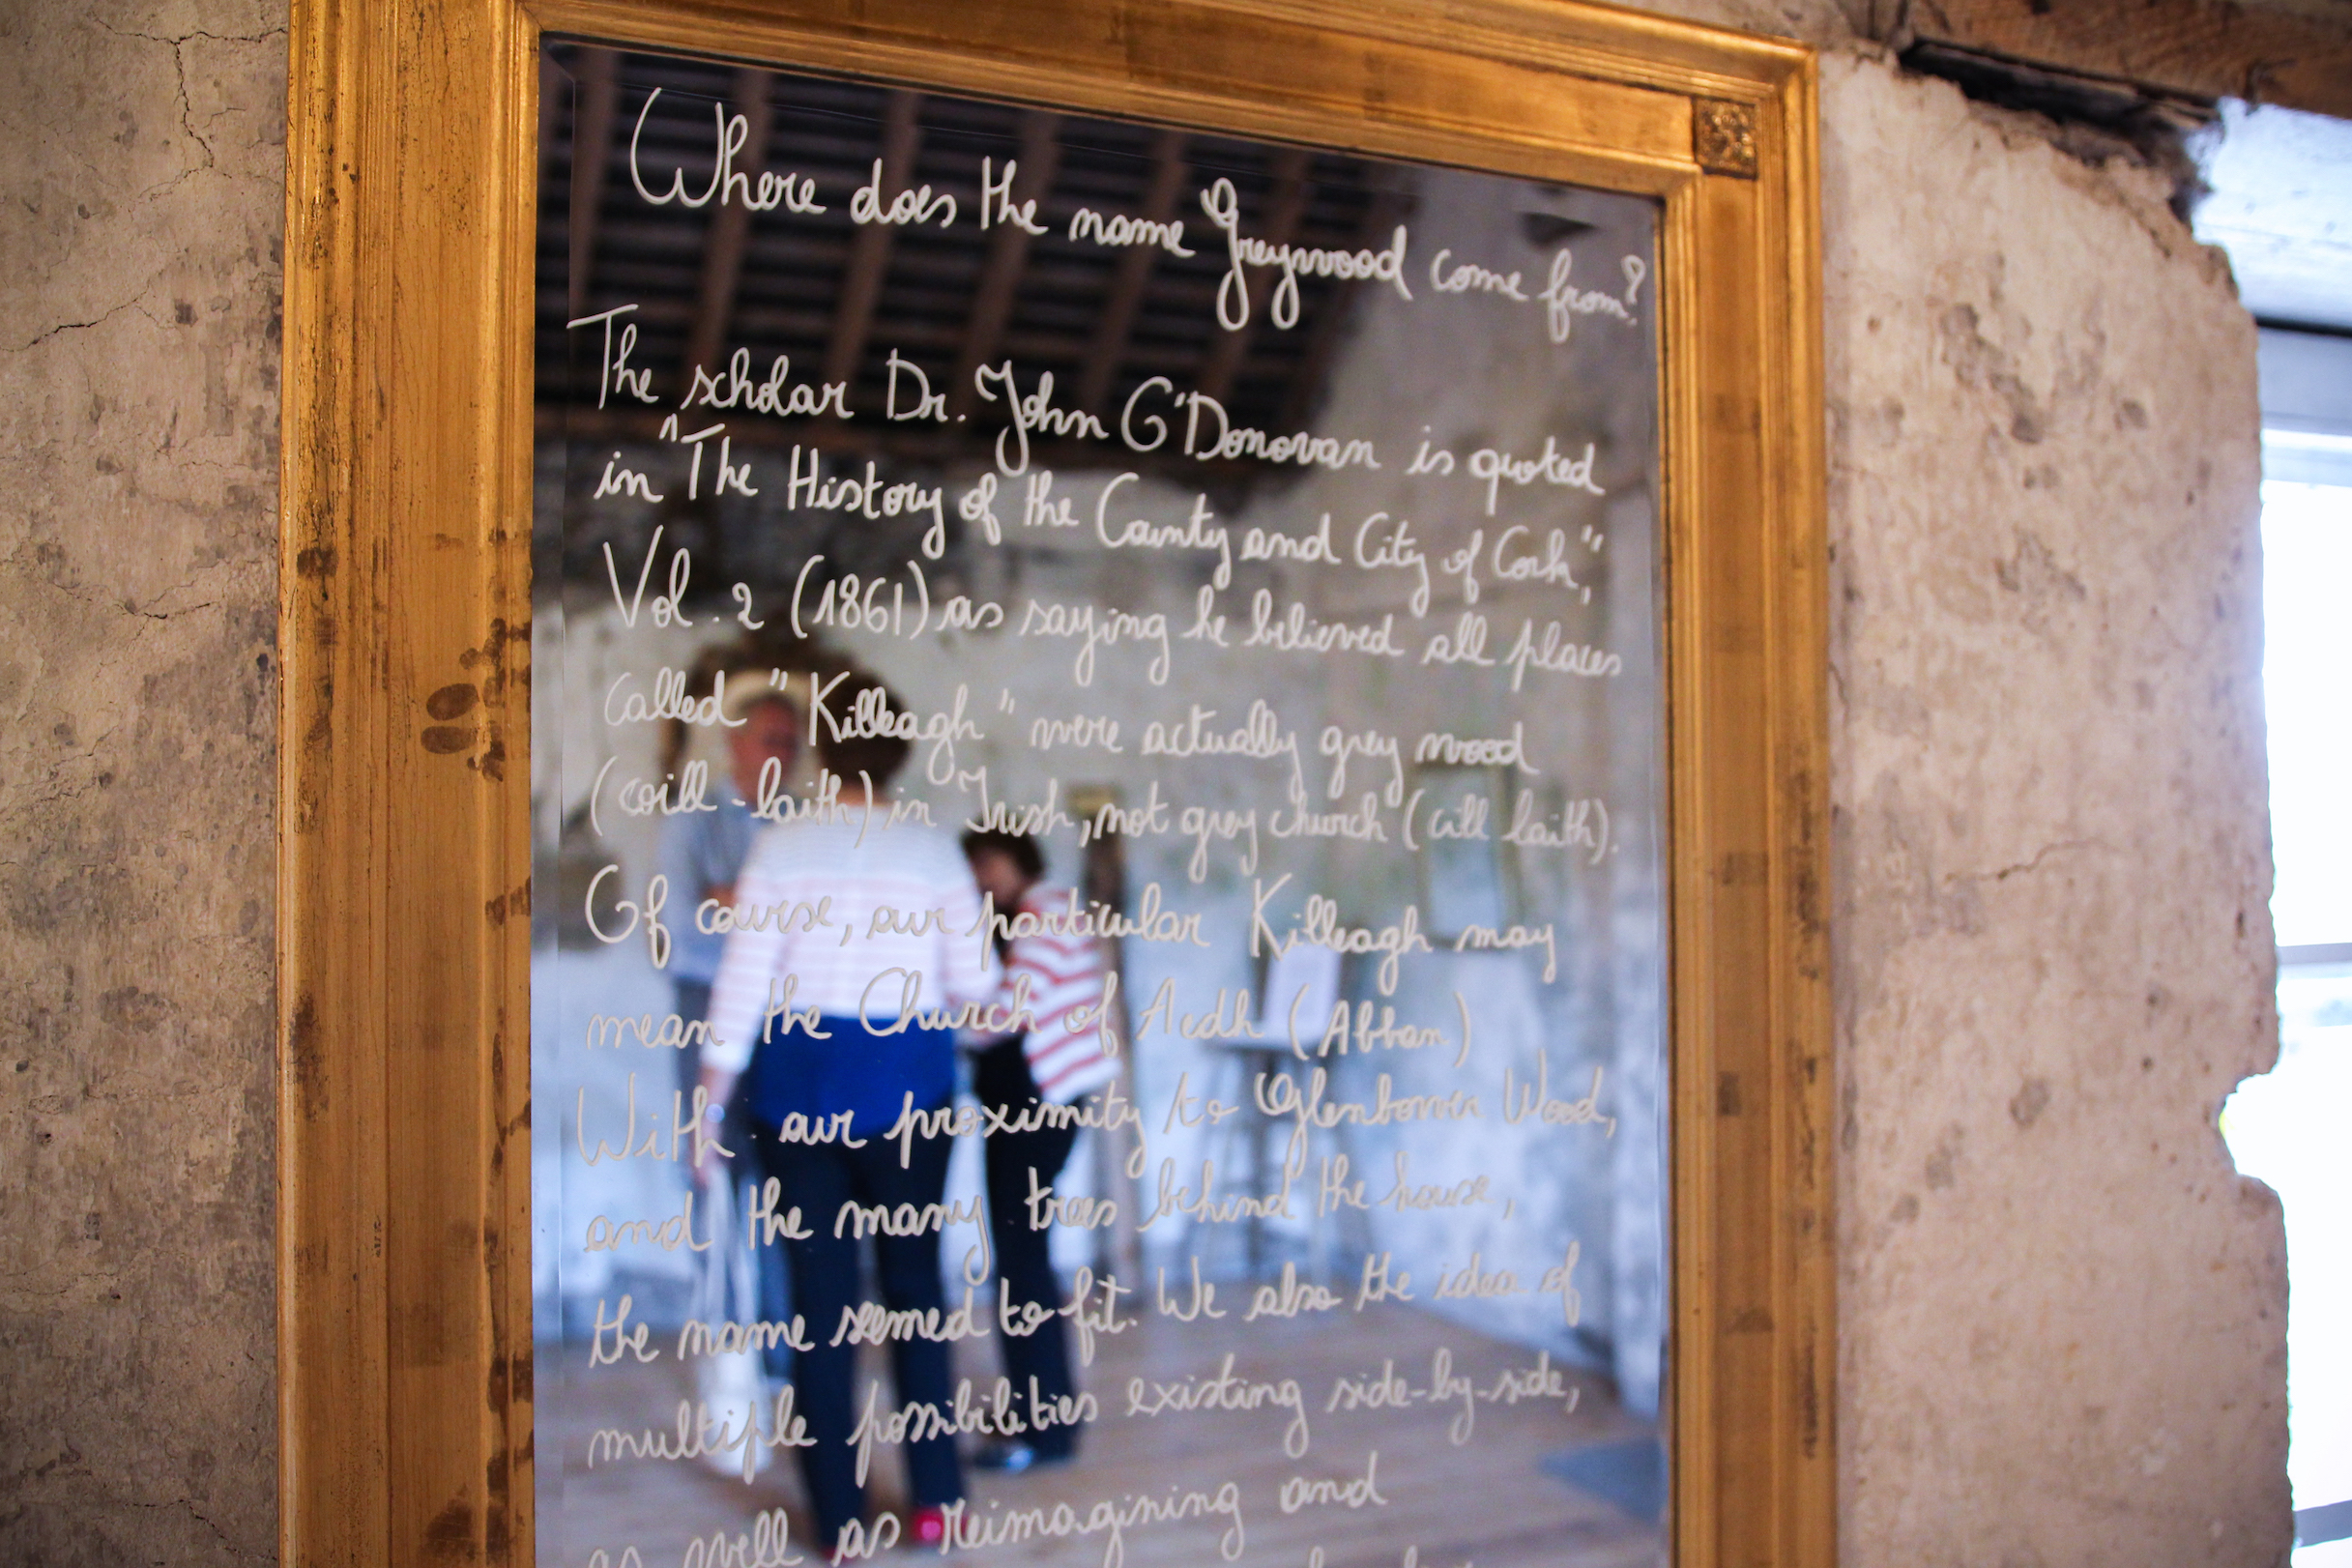 Where does the name Greywood come from?
The scholar Dr. John O'Donovan is quoted
in "The History of the County and City of Cork",
Vol. 2 (1861) as saying he believed all places
called "Killeagh" were actually grey wood
(coill-liaith) in Irish, not grey church (cill liaith).
Of course, our particular Killeagh may
mean the Church of Aedh (Abban)
With our proximity to Glenbower Wood,
and the many trees behind the house,
the name seemed to fit. We also the idea of
multiple possibilities existing side-by-side,
as well as reimagining and